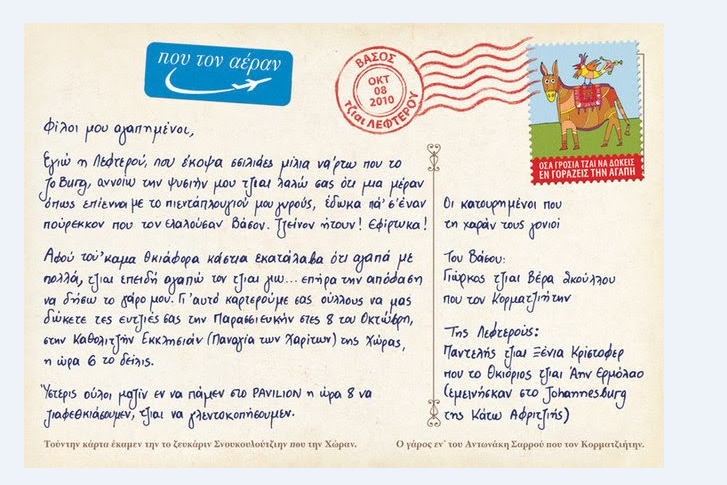 που τον αέραν
ΒΑΣΟΣ
ΟΚΤ
08
2010
τζιαι ΛΕΦΤΕΡΟΥ
ΟΣΑ ΓΡΟΣΙΑ ΤΖΑΙ ΝΑ ΔΩΚΕΙΣ
ΕΝ ΓΟΡΑΖΕΙΣ ΤΗΝ ΑΓΑΠΗ
Φίλοι μου αγαπημένοι,
Εγιώ η Λεφτερού, που έκοψα σσιλιάες μίλια νά'ρτω που το
Jo'Burg, αννοίω την ψυσιήν μου τζιαι λαλώ σας ότι μια μέραν
όπως επίεννα με το πιεντάπλουγιού μου γυρούς, έδωκα πά' σ'έναν
πούρεκκον που τον ελαλούσαν Βάσον. Τζείνον ήτουν! Εφίρτωκα!
Αφού του'καμα θκιάφορα κάστια εκατάλαβα ότι αγαπά με
πολλά, τζιαι επειδή αγαπώ τον τζιαι γιω... επήρα την απόφαση
να δήσω το γάρο μου. Γι'αυτό καρτερούμε σας ούλλους να μας
δώκετε τες ευτζιές σας την Παρασσιευκήν στες 8 του Οκτώβρη,
στην Καθολιτζήν Εκκλησιάν (Παναγία των Χαρίτων) της Χώρας,
η ώρα 6 το δείλις.
Ύστερις ούλοι μαζίν εν να πάμεν στο PAVILION η ώρα 8 να
ζιαφεθκιάσουμεν, τζιαι να γλεντοκοπήσουμεν.
Τούντην κάρτα έκαμεν την το ζευκάριν Σνουκουλούτζιην που την Χώραν.
Οι κατουρημένοι που
τη χαράν τους γονιοί
Του Βάσου:
Γιώρκος τζιαι Βέρα Σκούλλου
που τον Κορματζιήτην
Της Λεφτερούς:
Παντελής τζιαι Ξένια Κρίστοφερ
που το Θκιόριος τζιαι Άην Ερμόλαο
(εμεινήσκαν στο Johannesburg
της Κάτω Αφριτζιής)
Ο γάρος εν' του Αντωνάκη Σαρρού που τον Κορματζιήτην.